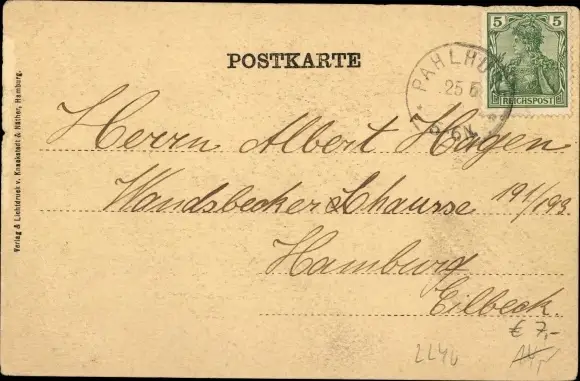 POSTKARTE
5 5
REICHSPOST
PAHLHU
25 6
5-6N.
Herrn Albert Hagen
Wandsbecker Chausse 191/193
Hamburg
Eilbeck.
€ 7,-
Verlag & Lichtdruck v. Knackstedt & Näther, Hamburg.